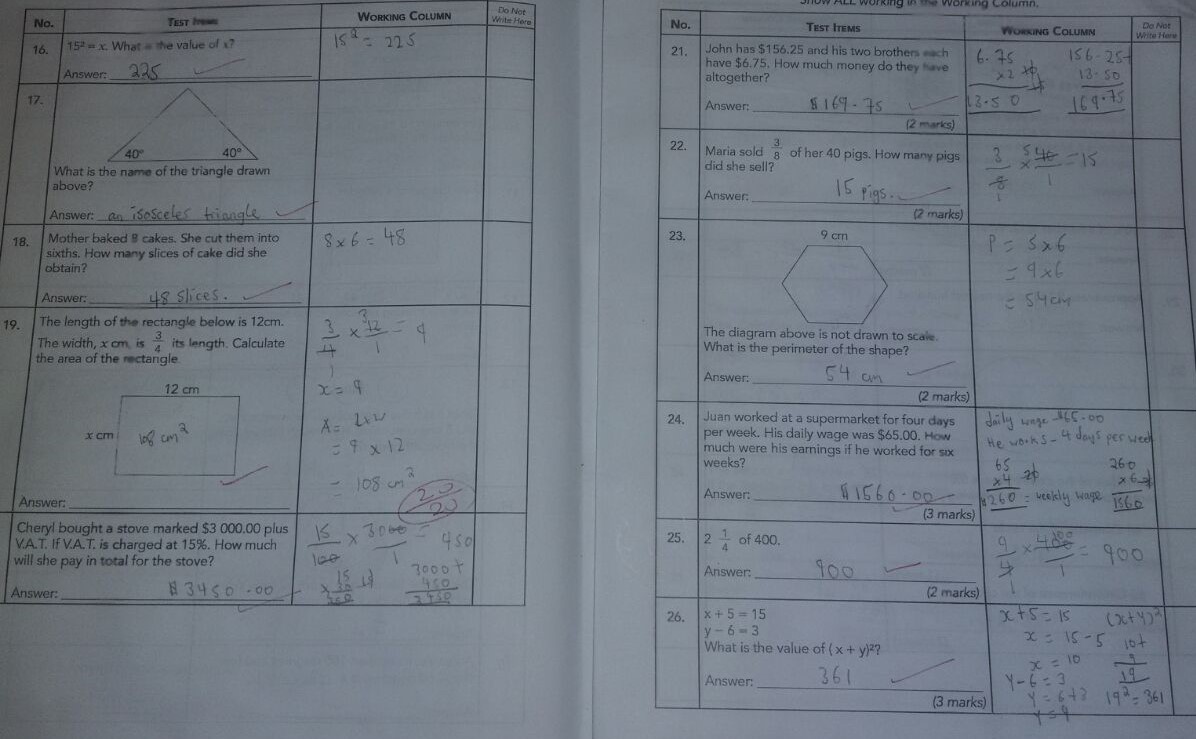 No.
TEST Items
WORKING COLUMN
Do Not
Write Here
16.
15² = x. What is the value of x?
Answer: 225
15² = 225
17.
40°
40°
What is the name of the triangle drawn
above?
Answer: an isosceles triangle
18.
Mother baked 8 cakes. She cut them into
sixths. How many slices of cake did she
obtain?
Answer: 48 slices.
8 x 6 = 48
19.
The length of the rectangle below is 12cm.
The width, x cm, is 3/4 its length. Calculate
the area of the rectangle.
12 cm
x cm
108 cm²
Answer:
3/4 x 12/1 = 9
x = 9
A = L x W
= 9 x 12
= 108 cm²
20/20
Cheryl bought a stove marked $3 000.00 plus
V.A.T. If V.A.T. is charged at 15%. How much
will she pay in total for the stove?
Answer: $3450.00
15/100 x 3000/1 = 450
3000+
450
3450
Show ALL working in the Working Column.
No.
TEST ITEMS
WORKING COLUMN
Do Not
Write Here
21.
John has $156.25 and his two brothers each
have $6.75. How much money do they have
altogether?
Answer: $169.75
(2 marks)
6.75
x2
13.50
156.25+
13.50
169.75
22.
Maria sold 3/8 of her 40 pigs. How many pigs
did she sell?
Answer: 15 pigs.
(2 marks)
3/8 x 40/1 = 15
23.
9 cm
The diagram above is not drawn to scale.
What is the perimeter of the shape?
Answer: 54 cm
(2 marks)
P = S x 6
= 9 x 6
= 54 cm
24.
Juan worked at a supermarket for four days
per week. His daily wage was $65.00. How
much were his earnings if he worked for six
weeks?
Answer: $1560.00
(3 marks)
daily wage $65.00
He works - 4 days per week
65
x4
$260 = weekly wage
260
x6
1560
25.
2 1/4 of 400.
Answer: 900
(2 marks)
9/4 x 400/1 = 900
26.
x + 5 = 15
y – 6 = 3
What is the value of (x + y)²?
Answer: 361
(3 marks)
x + 5 = 15
x = 15 - 5
x = 10
y - 6 = 3
y = 6 + 3
y = 9
(x+y)²
10+
9
19
19² = 361